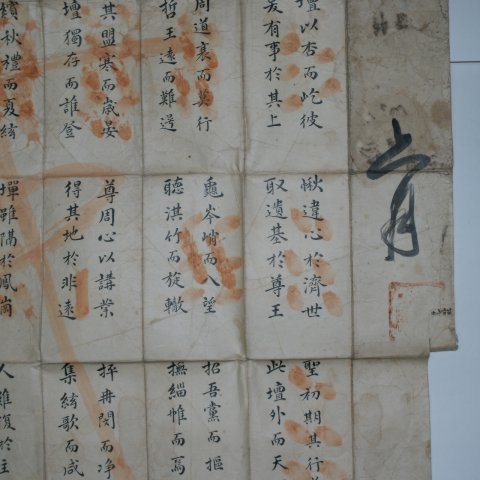 壇以杏而屹彼
爰有事於其上
周道衰而莫行
哲王遠而難逢
其盟寒而歲晏
壇獨存而誰登
秋禮而夏絃
愀違心於濟世
取遺基於尊王
龜岑峭而入望
聽淇竹而旋轍
尊周心以講業
得其地於非遠
墠雖隔於鳳崗
聖初期其行
此壇外而天
招吾黨而摳
撫緇帷而焉
而净
集絃歌而咸
人雖復於